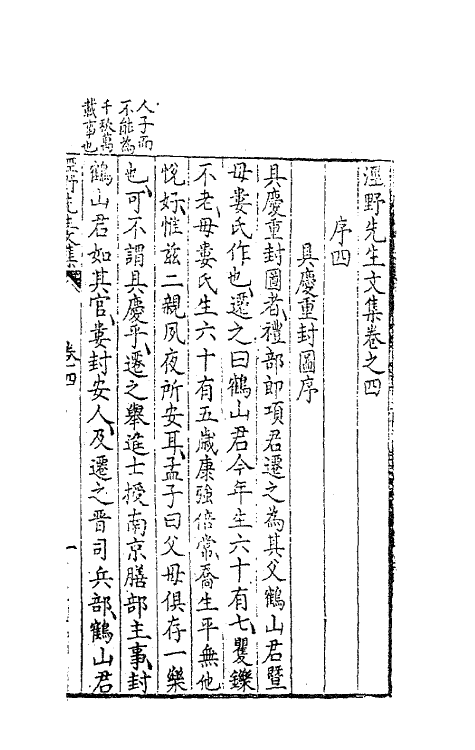 涇野先生文集卷之四
序四
具慶重封圖序
具慶重封圖者禮部郎項君遷之為其父鶴山君暨
母婁氏作也遷之曰鶴山君今年生六十有七矍鑠
不老母婁氏生六十有五歲康強倍常喬生平無他
悅好惟茲二親夙夜所安耳孟子曰父母俱存一樂
也可不謂具慶乎遷之舉進士授南京膳部主事封
鶴山君如其官婁封安人及遷之晉司兵部鶴山君
人子而
不能為
千秋萬
載事也
涇野先生文集
卷四
一